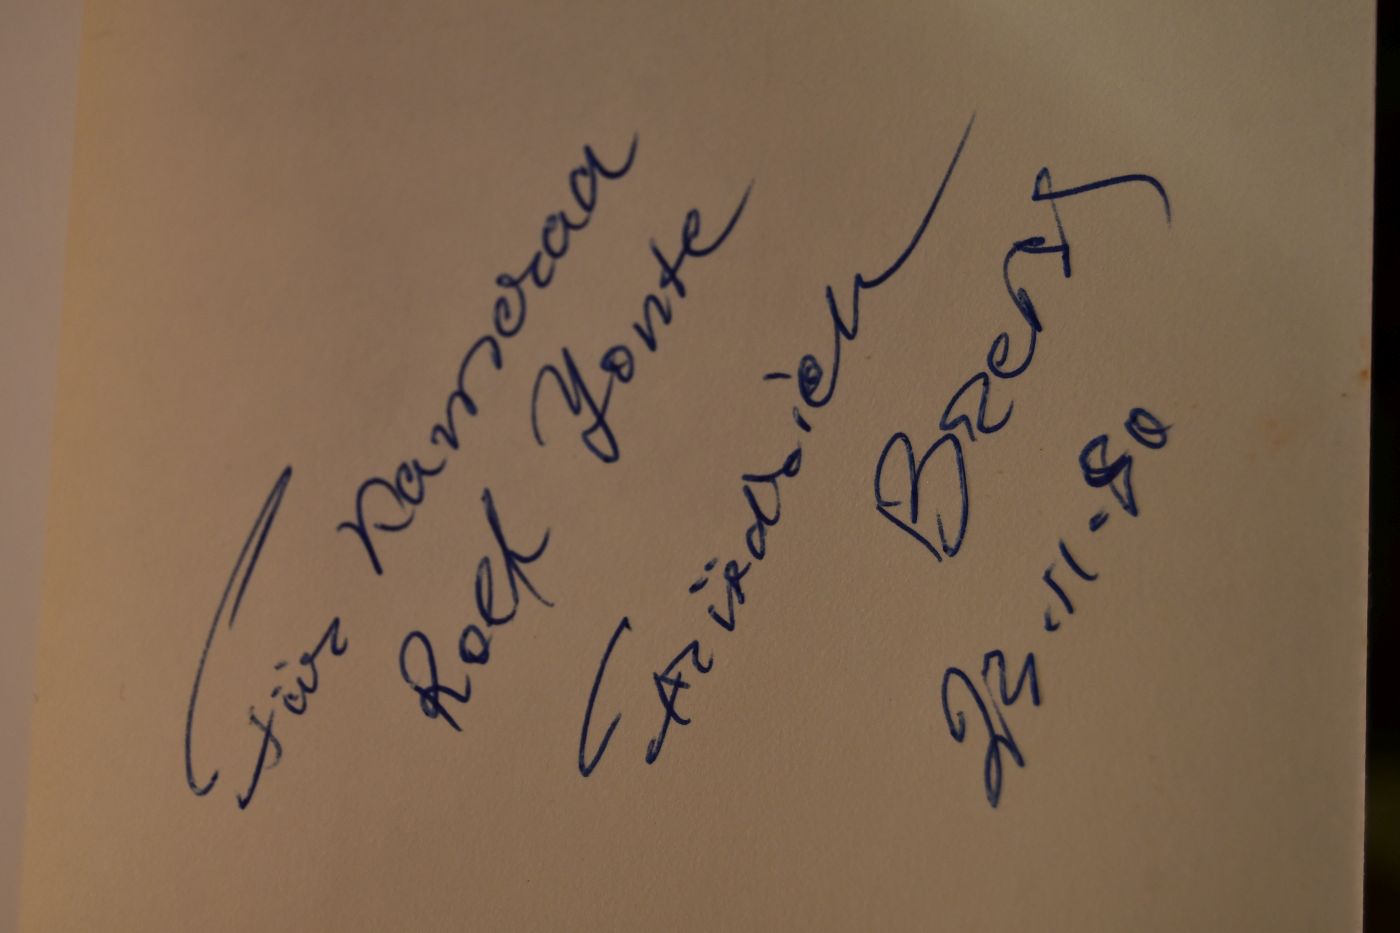 Für Kamerad
Rolf Yonte
Friedrich
11-80